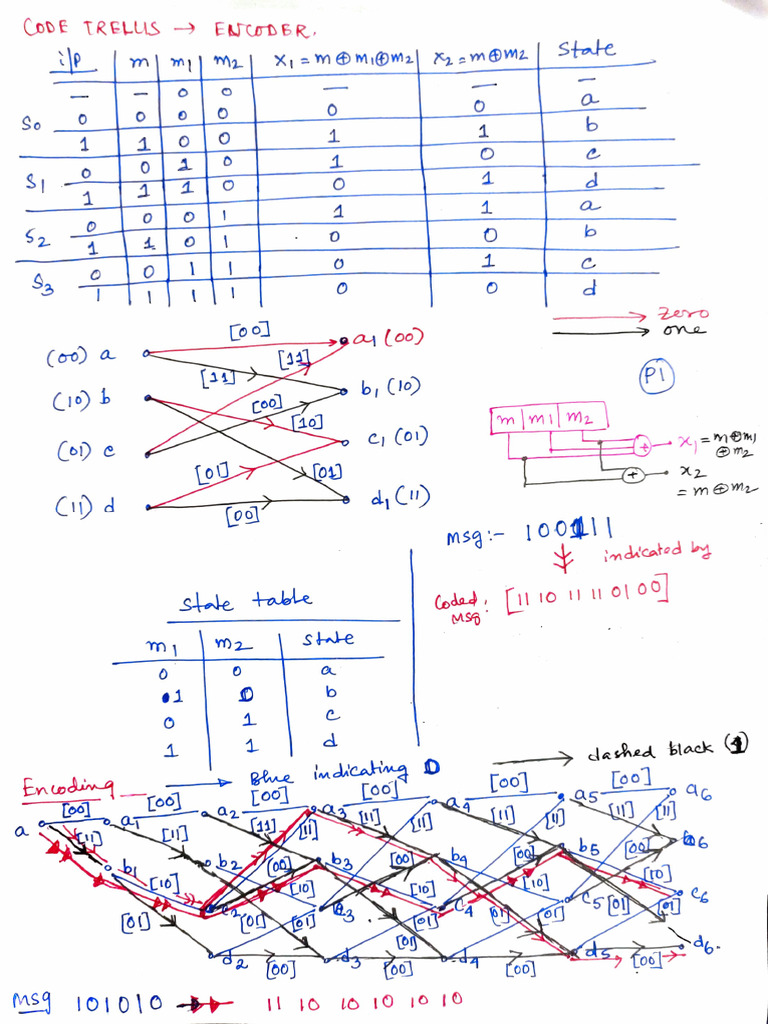 CODE TRELLIS → ENCODER.
i/p m m1 m2 x1 = m⊕m1⊕m2 x2 = m⊕m2 State
— — 0 0 — — —
S0 0 0 0 0 0 0 a
1 1 0 0 1 1 b
S1 0 0 1 0 1 0 c
1 1 1 0 0 1 d
S2 0 0 0 1 1 1 a
1 1 0 1 0 0 b
S3 0 0 1 1 0 1 c
1 1 1 1 0 0 d
→ zero
→ one
[00]
(00) a a1 (00)
[11]
[11]
(10) b b1 (10)
[00]
[10]
(01) c c1 (01)
[01] [01]
(11) d d1 (11)
[00]
P1
m m1 m2
x1 = m⊕m1
⊕m2
x2
= m⊕m2
msg:- 100111
indicated by
Coded msg: [11 10 11 11 01 00]
State table
m1 m2 state
0 0 a
1 0 b
0 1 c
1 1 d
→ dashed black (1)
Encoding → Blue indicating 0
[00] [00] [00] [00] [00] [00]
a a1 a2 a3 a4 a5 a6
[11] [11] [11] [11] [11] [11] [11] [11] [11]
b1 b2 b3 b4 b5 b6
[10] [00] [00] [00] [00]
[10] [10] [10] [10]
c2 c3 c4 c5 c6
[01] [01] [01] [01] [01] [01] [01] [01] [01]
d2 d3 d4 d5 d6.
[00] [00] [00] [00]
Msg 101010 →→ 11 10 10 10 10 10